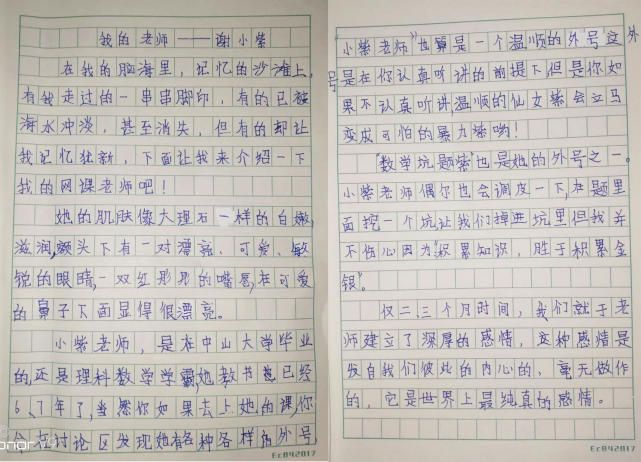 我的老师——谢小紫
在我的脑海里，记忆的沙滩上，
有我走过的一串串脚印，有的已被
海水冲淡，甚至消失，但有的却让
我记忆犹新，下面让我来介绍一下
我的网课老师吧！
她的肌肤像大理石一样的白嫩，
滋润，额头下有一对漂亮、可爱、敏
锐的眼睛，一双红彤彤的嘴唇，在可爱
的鼻子下面显得很漂亮。
小紫老师，是在中山大学毕业
的还是理科数学学霸，她教书也已经
6、7年了，当然你如果去上她的课，你
会在讨论区发现她有各种各样的外号，
Ec042017
"小紫老师"也算是一个温顺的外号这外
号是在你认真听讲的前提下但是你如
果不认真听讲，温顺的仙女紫会立马
变成可怕的暴力紫哟！
"数学坑题紫"也是她的外号之一。
小紫老师偶尔也会调皮一下，在题里
面挖一个坑让我们掉进坑里但我并
不伤心因为"积累知识，胜于积累金
银"。
仅二、三个月时间，我们就于老
师建立了深厚的感情，这种感情是
发自我们彼此的内心的、毫无做作
的，它是世界上最纯真的感情。
Ec042017